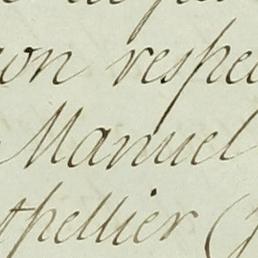 on respec
Manuel
thellier (